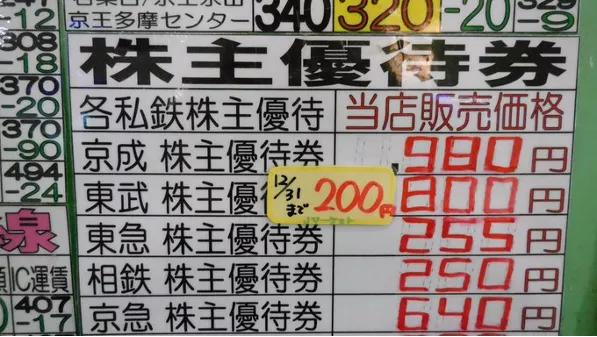 京王多摩センター 340 320 -20 -9
株主優待券
各私鉄株主優待 当店販売価格
京成 株主優待券 980円
東武 株主優待券 800円
12/31まで 200円
東急 株主優待券 255円
相鉄 株主優待券 250円
京急 株主優待券 640円
-12
308
-18
370
-20
370
-90
494
-24
線
IC運賃
407
-17